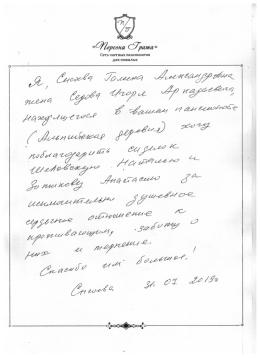 «Персона Гранж»
Сеть частных пансионатов
для пожилых
Я, Сысоева Галина Александровна
жена Седова Игоря Аркадьевича,
находящегося в вашем пансионате
(Альпийская деревня) хочу
поблагодарить сиделок
Наталью и
Анастасию за
исключительно душевное
отношение к
проживающим, заботу о
них и терпение.
Спасибо им большое!
31.07.2019г